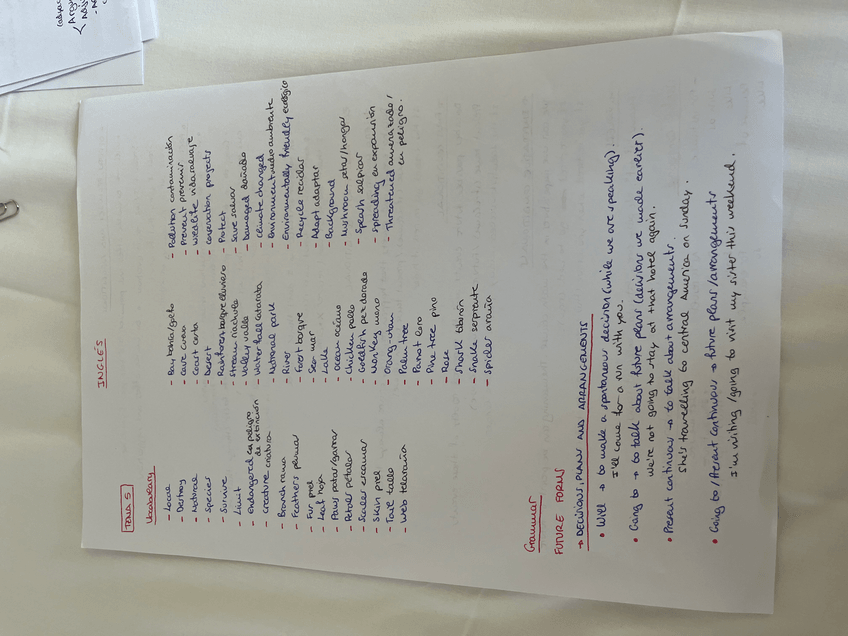 INGLÉS
TEMA 5
Vocabulary
- Local
- Destroy
- Natural
- Species
- Survive
- Limit
- Endangered en peligro de extinción
- Creature criatura
- Branch rama
- Feathers plumas
- Fur piel
- Leaf hoja
- Paws patas/garras
- Petals petalos
- Scales escamas
- Skin piel
- Tail
- Web telaraña
- Bay bahía/golfo
- Cave cueva
- Coast costa
- Desert
- Rainforest bosque lluvioso
- Stream riachuelo
- Valley valle
- Waterfall catarata
- National park
- River
- Forest bosque
- Sea mar
- Lake
- Ocean océano
- Chicken pollo
- Goldfish pez dorado
- Monkey mono
- Orang-utan
- Palm tree
- Parrot loro
- Pine tree pino
- Rose
- Shark tiburón
- Snake serpiente
- Spider araña
- Pollution contaminación
- Prevent prevenir
- Wildlife vida salvaje
- projects
- Protect
- Save salvar
- Damaged dañado
- Climate changed
- Environment medio ambiente
- Environmentally friendly ecológico
- Recycle reciclar
- Adapt adaptar
- Background
- Mushroom setas/hongos
- Splash salpicar
- Spreading en expansión
- Threatened amenazado/
en peligro.
Grammar
FUTURE FORMS
→ DECISIONS, PLANS AND ARRANGEMENTS
• Will → to make a spontaneous decision (while we are speaking).
I'll come for a run with you.
• Going to → to talk about future plans (decisions we made earlier).
We're not going to stay at that hotel again.
• Present continuous → to talk about arrangements.
She's travelling to central America on Sunday.
• Going to / Present continuous → future plans / arrangements
I'm visiting / going to visit my sister this weekend.